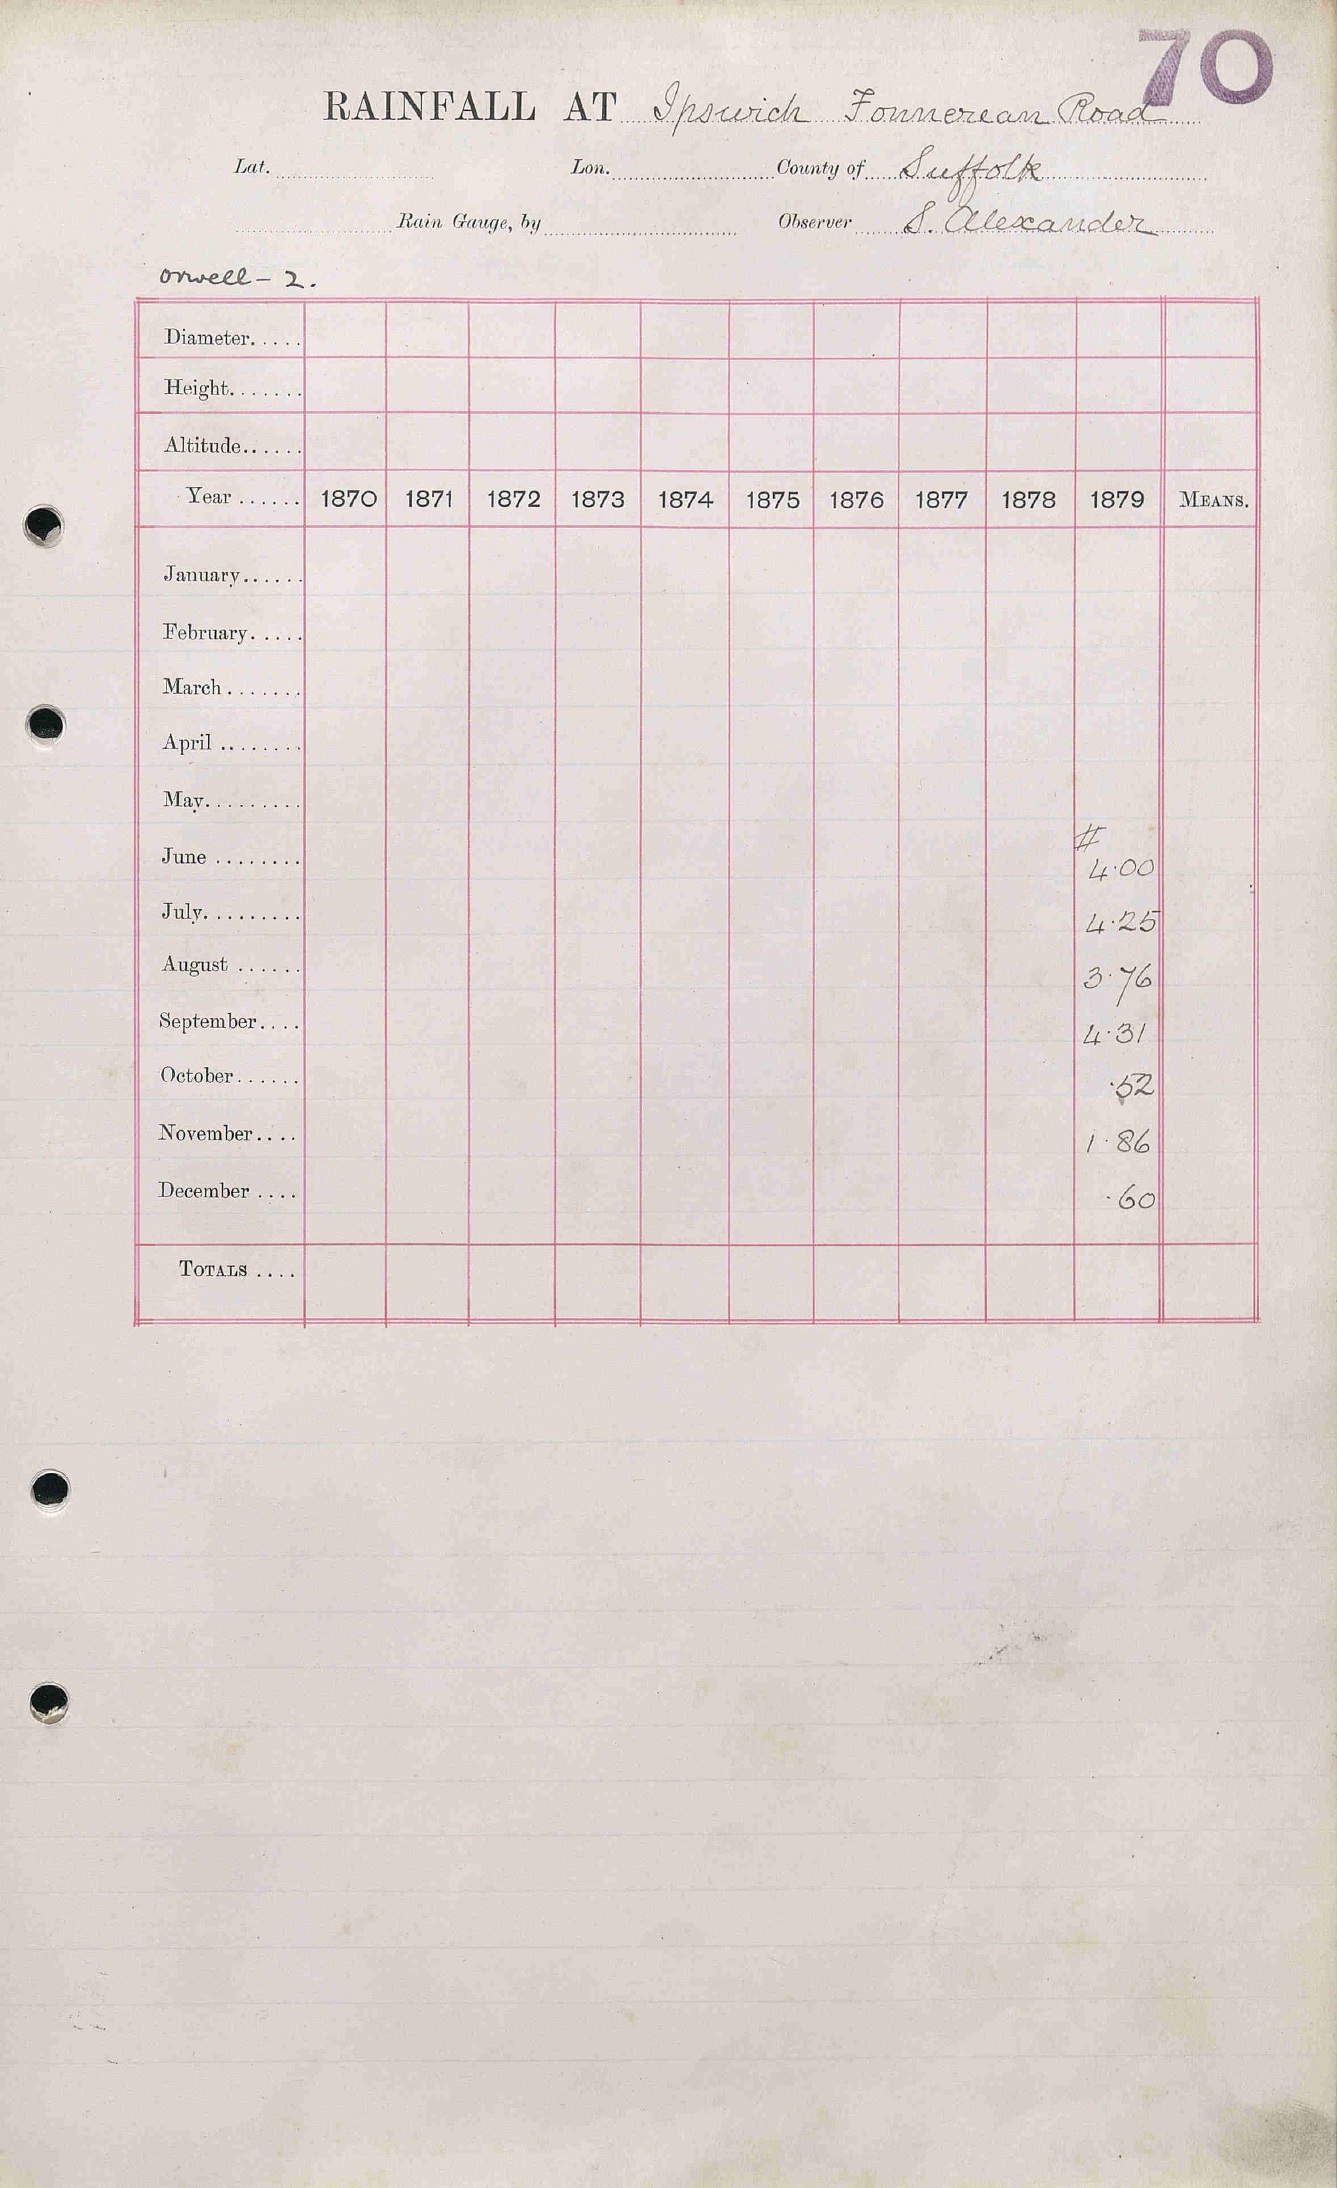 70
RAINFALL AT Ipswich Fonnereau Road
Lat. Lon. County of Suffolk
Rain Gauge, by Observer S. Alexander
Orwell - 2.
Diameter.....
Height.......
Altitude......
Year ...... 1870 1871 1872 1873 1874 1875 1876 1877 1878 1879 MEANS.
January......
February.....
March.......
April ........
May.........
#
June ........ 4·00
July......... 4·25
August ...... 3·76
September.... 4·31
October...... ·52
November.... 1·86
December .... ·60
TOTALS ....